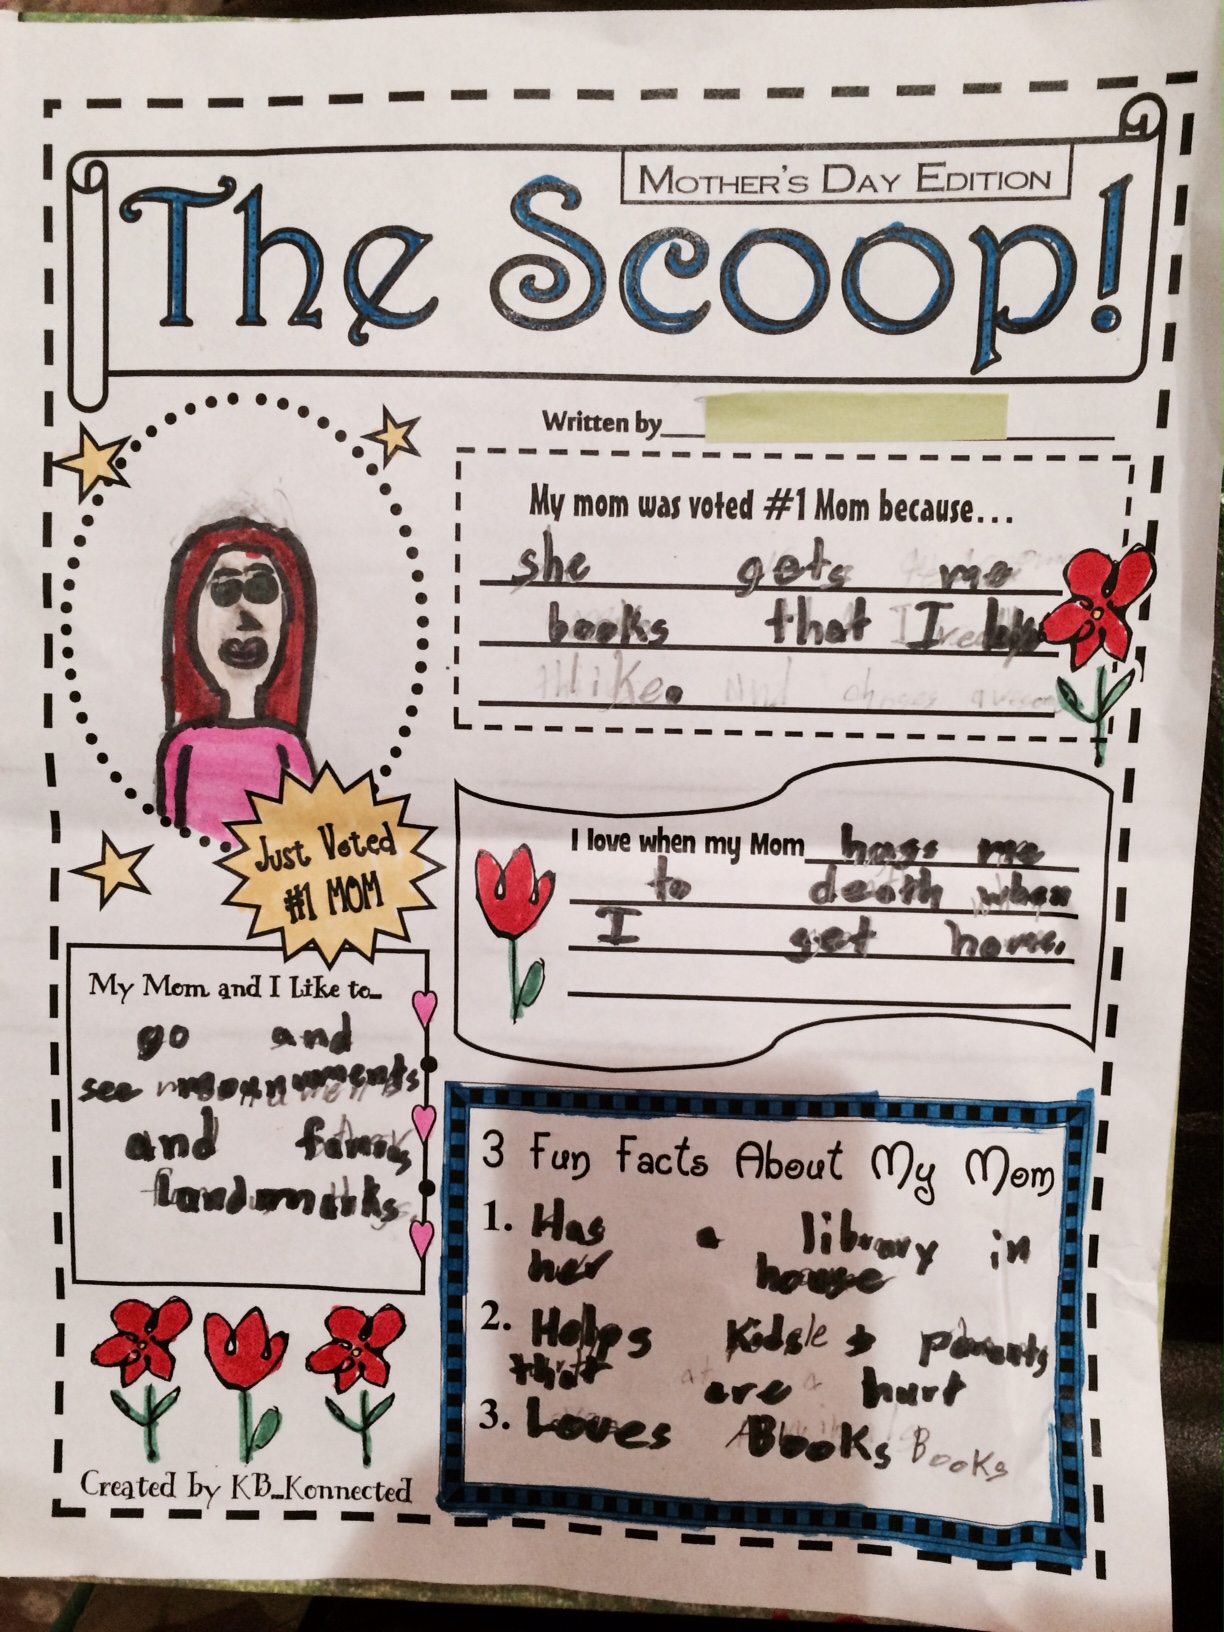 MOTHER'S DAY EDITION
The Scoop!
Written by
My mom was voted #1 Mom because...
she gets me
books that I
like. And
I love when my Mom hugs me
to death when
I get home.
Just Voted
#1 MOM
My Mom and I Like to_
go and
see monuments
and
landmarks.
3 Fun Facts About My Mom
1. Has a library in
her house
2. Helps Kids & parents
that are hurt
3. Loves Books Books
Created by KB_Konnected